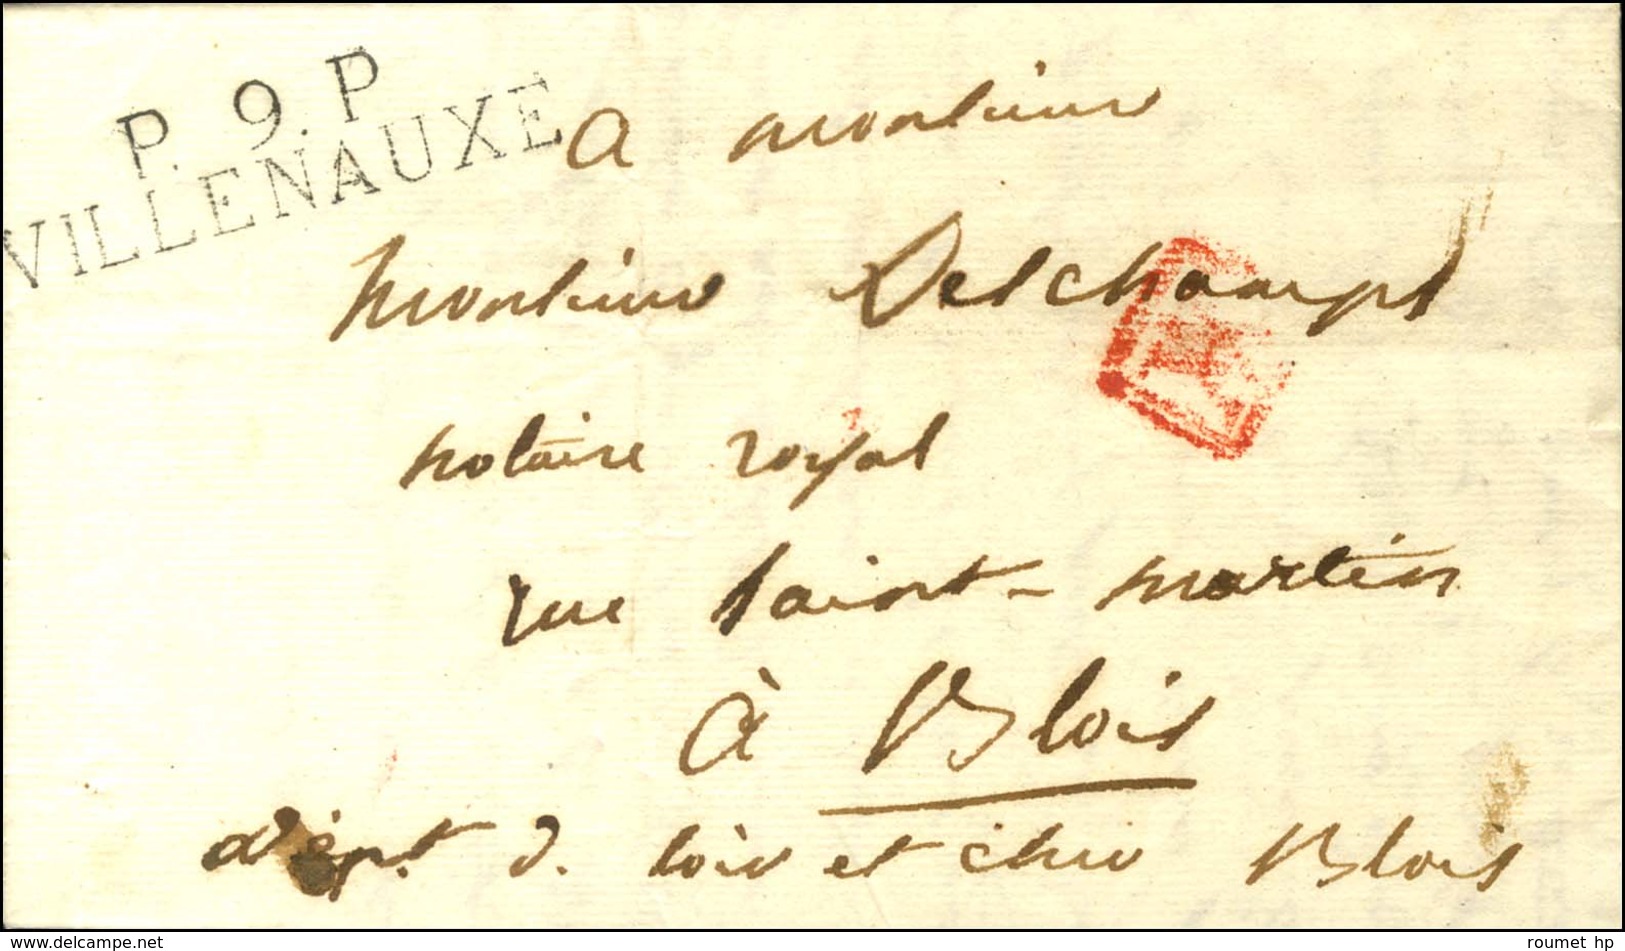 P. 9. P
VILLENAUXE
a monsieur
monsieur Deschamps
notaire royal
rue saint-martin
à Blois
dépt. d. loir et cher Blois
www.delcampe.net
roumet hp